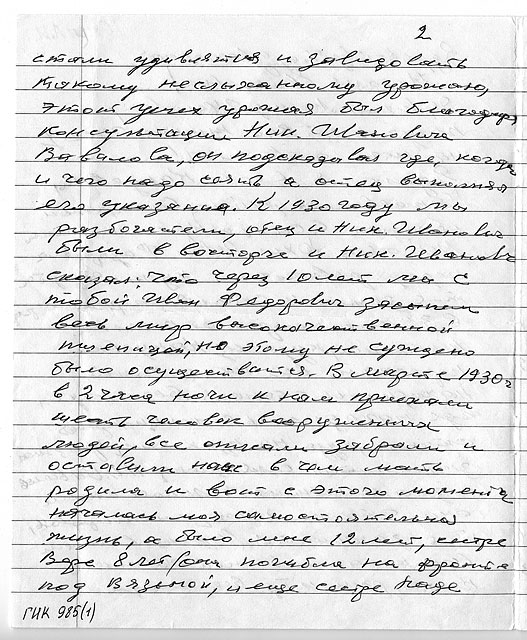 2
стали удивляться и завидовать
такому неслыханному урожаю,
этот успех урожая был благодаря
консультации Ник. Ивановича
Вавилова, он подсказывал где, когда
и чего надо сеять а отец выполнял
его указания. К 1930 году мы
разбогатели, отец и Ник. Иванович
были в восторге и Ник. Иванович
сказал: Что через 10 лет мы с
тобой Иван Федорович засыпем
весь мир высококачественной
пшеницой, но этому не суждено
было осуществится. В марте 1930г
в 2 часа ночи к нам приехали
шесть человек вооруженных
людей, все описали забрали и
оставили нас в чем мать
родила и вост с этого момента
началась моя самостоятельная
жизнь, а было мне 12 лет, сестре
Вере 8 лет/она погибла на фронте
под Вязьмой, и еще сестре Наде
ГИК 985(1)